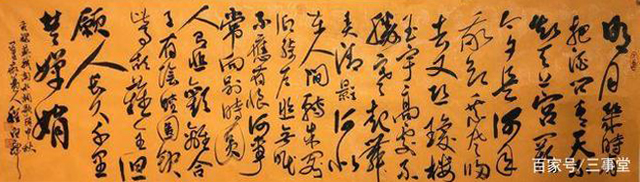 明月幾時有
把酒問青天不
知天上宮闕
今夕是何年
我欲乘風歸
去又恐瓊樓
玉宇高處不
勝寒起舞
弄清影何似
在人間轉朱閣
低綺户照無眠
不應有恨何事
常向别時圓
人有悲歡離合
月有陰晴圓缺
此事古難全但
願人長久千里
共嬋娟
百家号/三事堂